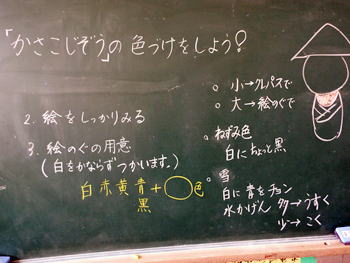 「かさこじぞう」の色づけをしよう!
2. 絵をしっかりみる
3. 絵のぐの用意
(白をかならずつかいます。)
白赤黄青+◯色
黒
○ 小→クレパスで
○ 大→絵のぐで
○ ねずみ色
白にちょっと黒
○ 雪
白に青をチョン
水かげん 多→うすく
少→こく